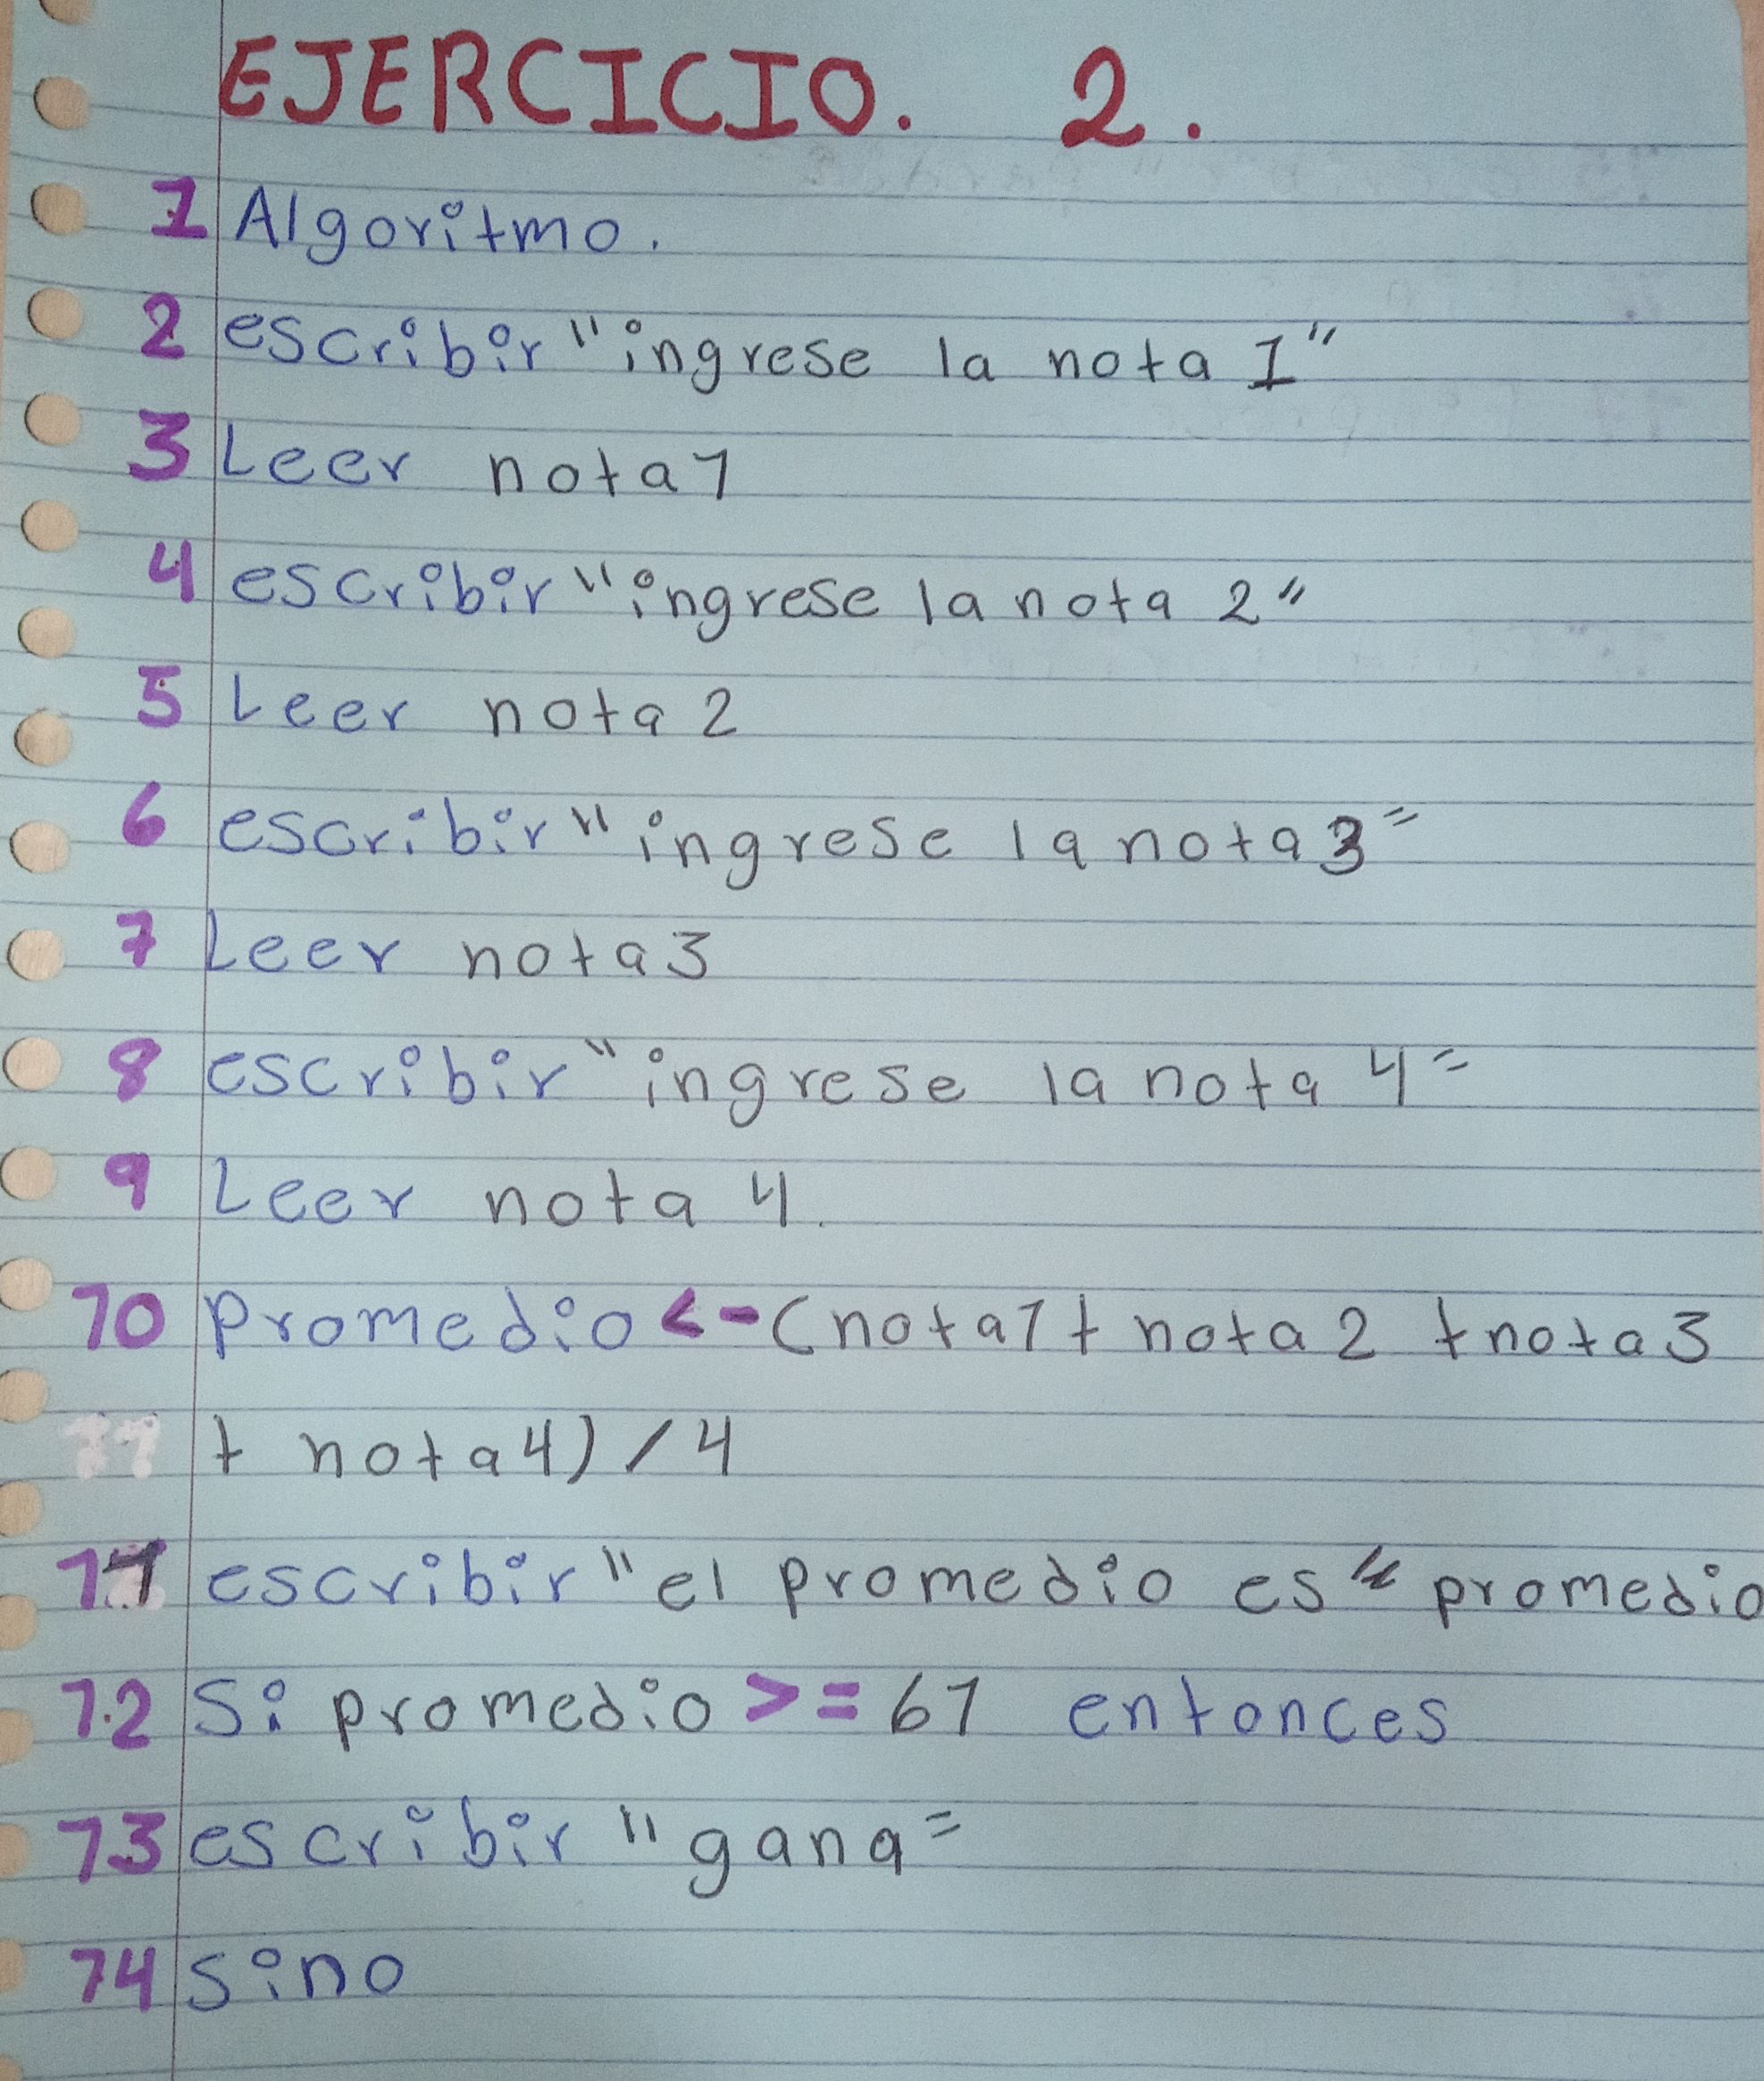 EJERCICIO. 2.
1 Algoritmo.
2 escribir "ingrese la nota 1"
3 Leer nota1
4 escribir "ingrese la nota 2"
5 Leer nota 2
6 escribir "ingrese la nota 3"
7 Leer nota3
8 escribir "ingrese la nota 4"
9 Leer nota 4.
10 promedio <-(nota1+ nota 2 +nota 3
+ nota4) / 4
11 escribir "el promedio es" promedio
12 Si promedio >= 61 entonces
13 escribir "gana"
14 sino